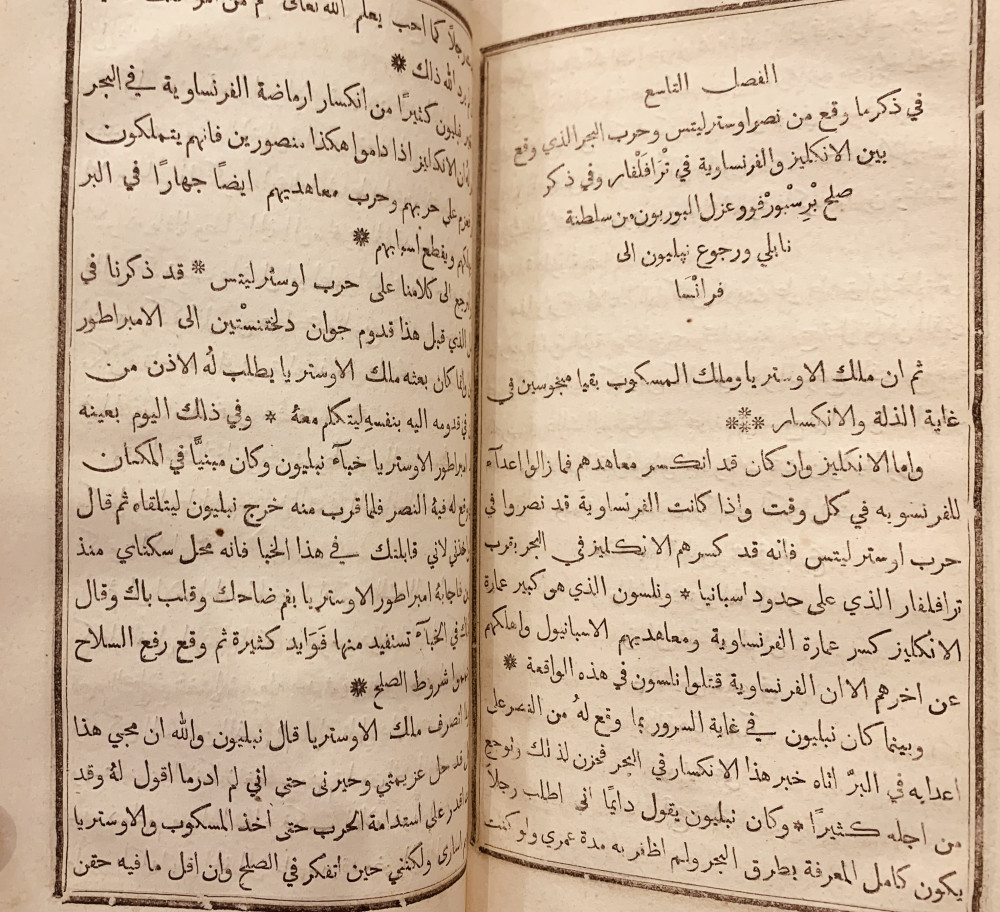 الفصل التاسع
في ذكر ما وقع من نصر اوسترليتس وحرب البحر الذي وقع
بين الانكليز والفرنساوية في تْرَافَلْفار وفي ذكر
صلح بْرِسْبورْڤو وعزل البوربون من سلطنة
نابلي ورجوع نپليون الى
فرانْسَا
ثم ان ملك الاوستريا وملك المسكوب بقيا منحوسين في
غاية الذلة والانكسار ***
واما الانكليز وان كان قد انكسر معاهدهم فما زالوا اعدآء
للفرنسويه في كل وقت واذا كانت الفرنساوية قد نصروا في
حرب اوسترليتس فانه قد كسرهم الانكليز في البحر بقرب
ترافلفار الذي على حدود اسبانيا * ونلسون الذي هو كبير عمارة
الانكليز كسر عمارة الفرنساوية ومعاهديهم الاسبانيول واهلكهم
عن اخرهم الا ان الفرنساوية قتلوا نلسون في هذه الواقعة *
وبينما كان نبليون في غاية السرور بما وقع لهُ من النصر على
اعدايه في البرّ اتاه خبر هذا الانكسار في البحر فحزن لذلك وتوجع
من اجله كثيرًا * وكان نبليون يقول دايمًا اني اطلب رجلاً
يكون كامل المعرفة بطرق البحر ولم اظفر به مدة عمري ولو كنت
رجلاً كما احب يعلم الله تعالى
يرد الله ذلك *
نبليون كثيرًا من انكسار ارماضة الفرنساوية في البحر
ان الانكليز اذا داموا هكذا منصورين فانهم يتملكون
على حربهم وحرب معاهديهم ايضًا جهارًا في البر
ويقطع اسبابهم *
الى كلامنا على حرب اوسترليتس * قد ذكرنا في
الذي قبل هذا قدوم جوان دلختنستْين الى الامبراطور
كان بعثه ملك الاوستريا يطلب لهُ الاذن من
في قدومه اليه بنفسهِ ليتكلم معهُ * وفي ذلك اليوم بعينه
امبراطور الاوستريا خبآء نبليون وكان مبنيًّا في المكان
له قبة النصر فلما قرب منه خرج نبليون ليتلقاه ثم قال
لاني قابلتك في هذا الخبا فانه محل سكناي منذ
فاجابهُ امبراطور الاوستريا بفم ضاحك وقلب باك وقال
في الخبآء تستفيد منها فَوَايد كثيرة ثم وقع رفع السلاح
شروط الصلح *
انصرف ملك الاوستريا قال نبليون والله ان مجي هذا
قد حل عزيمتي وحيرنى حتى اني لم ادر ما اقول لهُ وقد
اقدر على استدامة الحرب حتى آخذ المسكوب والاوستريا
ولكنني حين اتفكر في الصلح وان اقل ما فيه حقن